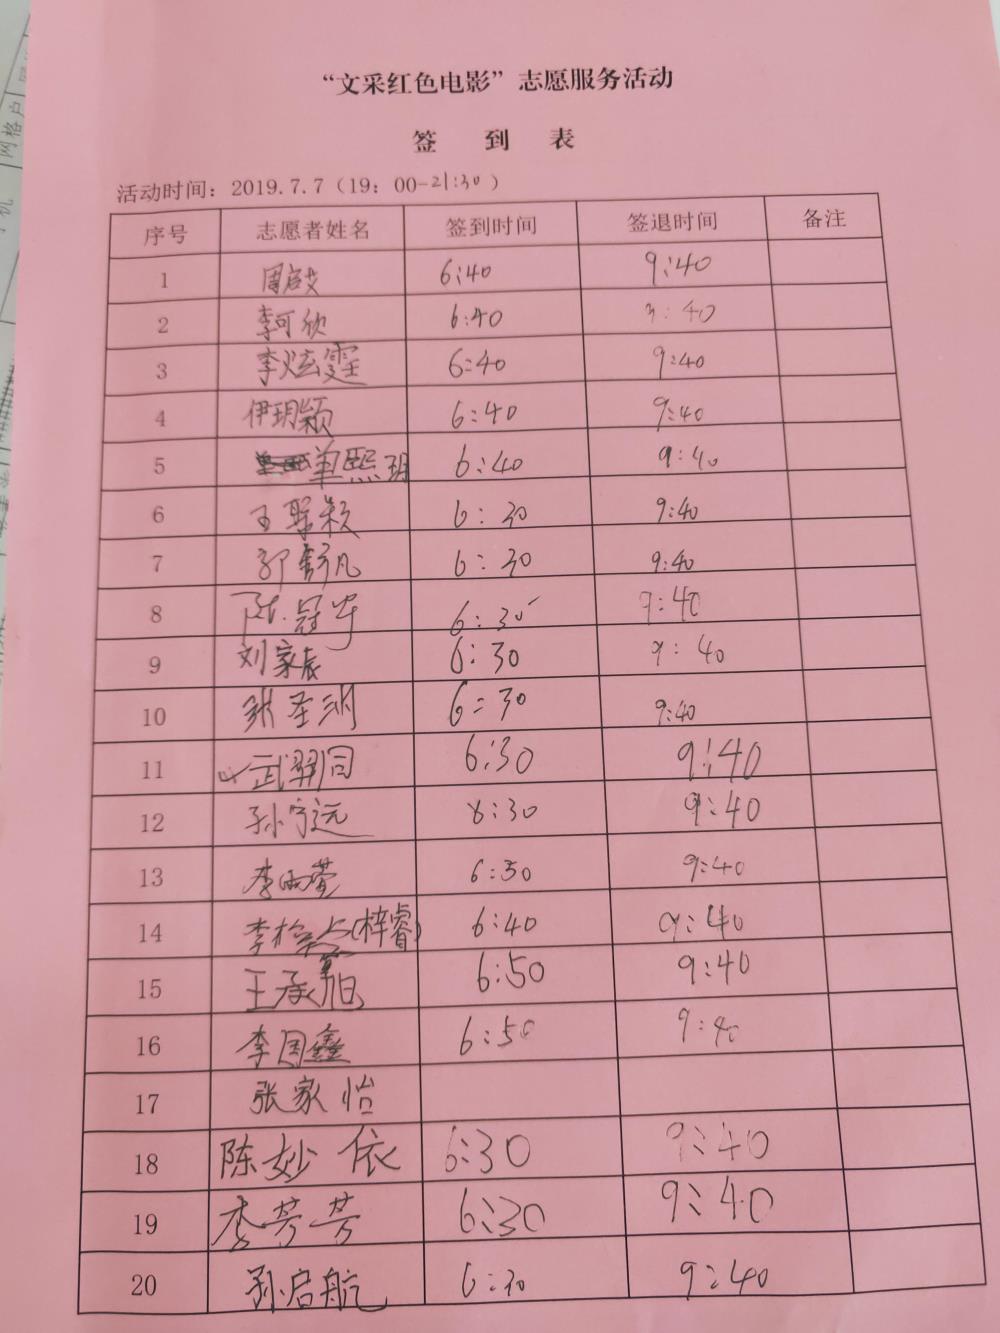 “文采红色电影”志愿服务活动
签 到 表
活动时间：2019.7.7（19：00-21:30）
序号 志愿者姓名 签到时间 签退时间 备注
1 6:40 9:40
2 李可欣 6:40 9:40
3 李炫霆 6:40 9:40
4 伊玥颖 6:40 9:40
5 单熙玥 6:40 9:40
6 王 颖 6:30 9:40
7 郭舒凡 6:30 9:40
8 陈冠宇 6:30 9:40
9 刘家辰 6:30 9:40
10 张圣 6:30 9:40
11 武 同 6:30 9:40
12 孙宁远 6:30 9:40
13 李雨萱 6:30 9:40
14 李 (梓睿) 6:40 9:40
15 王承旭 6:50 9:40
16 李国鑫 6:50 9:40
17 张家怡
18 陈妙依 6:30 9:40
19 李芳芳 6:30 9:40
20 孙启航 6:30 9:40
网格户